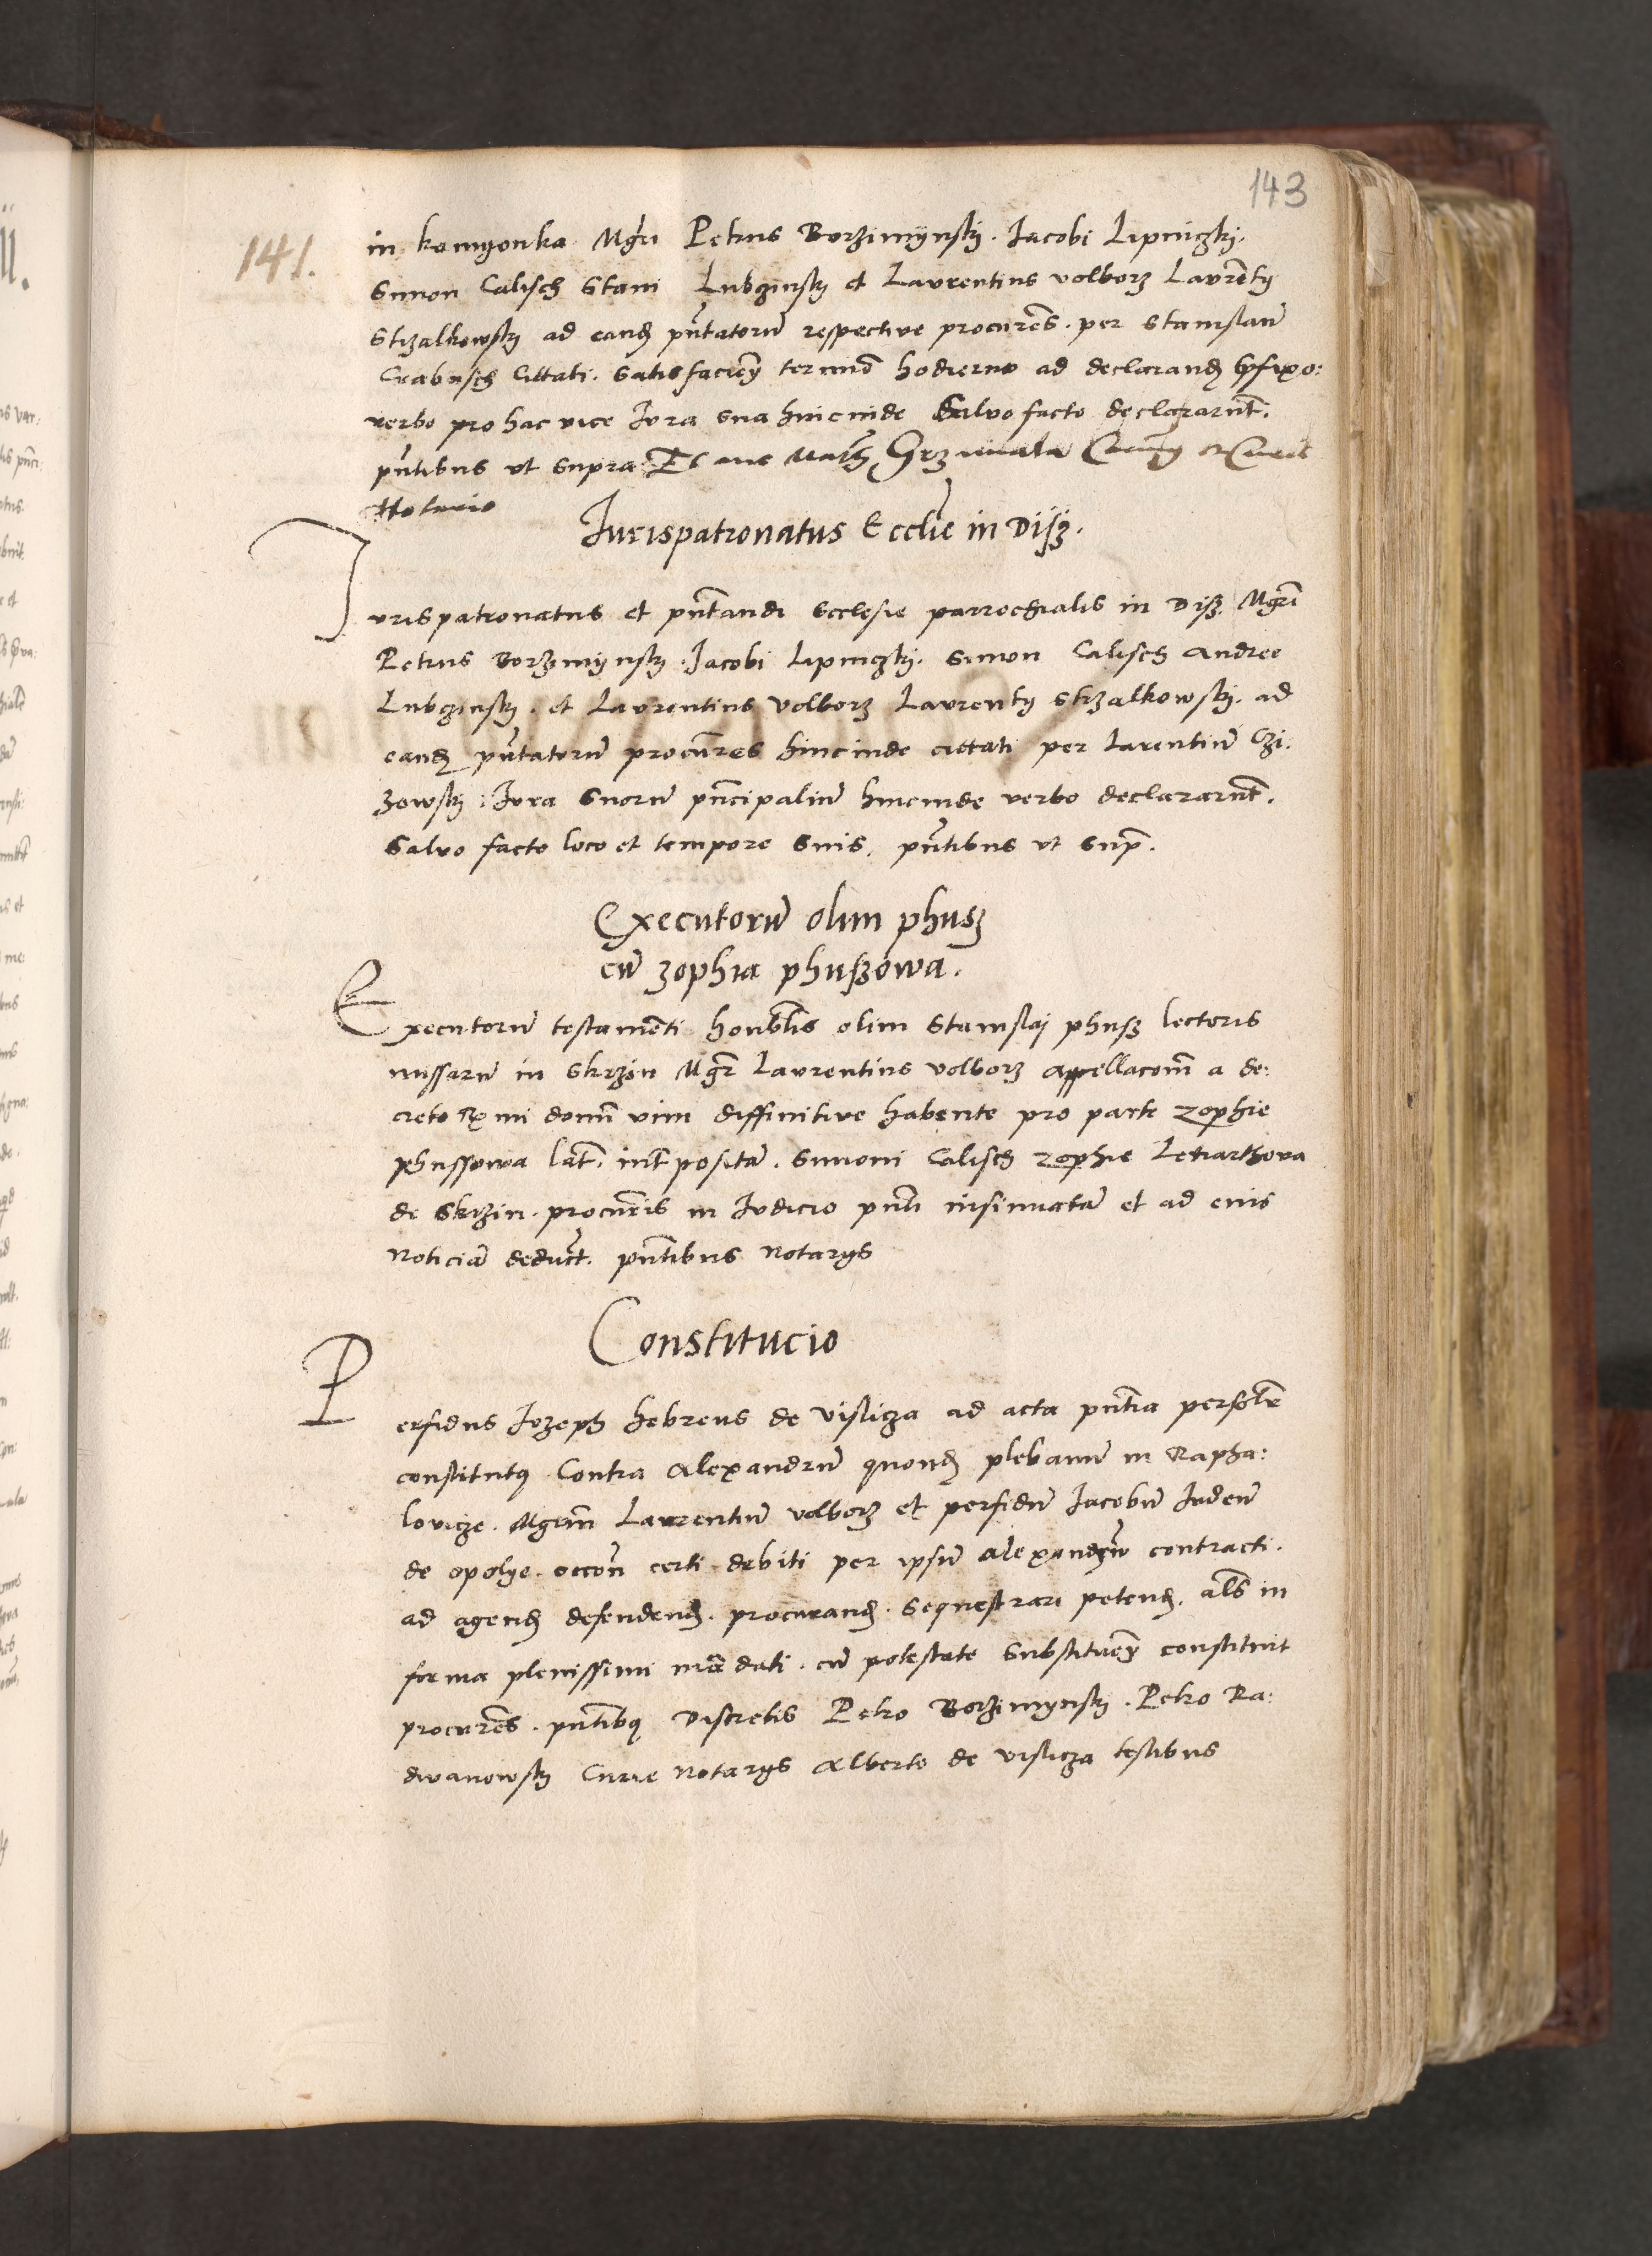 143
141.
in kamyonka Mgri Petrus Borzimijnskj. Jacobi Lipniczkj.
Simon Calisch Stani Lubzinskj et Laurentius volborz Laurentij
Strzalkowskj ad eand pntatorum respective procures. per Stanislaum
Crabusch Cittati. Satisfacien termino hodierno ad declarand
verbo pro hac vice Jura sua hincinde Salvo facto declararunt.
pntibus ut supra Et me Math Grzimala
Notario
Jurispatronatus Ecclie in Disz.
Jurispatronatus et pntandi ecclesie parrochialis in Disz Mgri
Petrus Borzimijnskj. Jacobi Lipniczkj. Simon Calisch Andree
Lubzinskj. et Laurentius Volborz Laurentij Strzalkowskj. ad
eand pntatorum procures hincinde cittati per Larentium Czi:
zowskj: Jura suorum pncipalium hincinde verbo declararunt.
Salvo facto loco et tempore suis. pntibus ut supr.
Executorum olim phusz
cum zophia phuszowa.
Executorum testamenti honblis olim Stanislaj phusz lectoris
missarum in Skrzin Mgr Laurentius volborz appellacom a de:
creto Rmi domi vim diffinitive habente pro parte zophie
phussowa lat. intposita. Simoni Calisch zophie Letiarthova
de Skrzin. procuris in Judicio pnti insinuatam et ad eius
Noticiam deduct. pntibus Notarijs
Constitucio
Perfidus Jozeph hebreus de visliza ad acta pntia personlr
constitutus Contra Alexandrum quond plebanum in Rapha:
lovicze. Mgrum Laurentium volborz et perfidum Jacobum Judeum
de opolye. occon certi debiti per ipsum Alexandrum contracti.
ad agend defendend. procurand. Sequestrari petend. als in
forma plenissimi mandati. cum potestate Substituen constituit
procures. pntibus Discretis Petro Borzimynskj. Petro Ra:
dwanowskj Curie Notarijs Alberto de visliza testibus